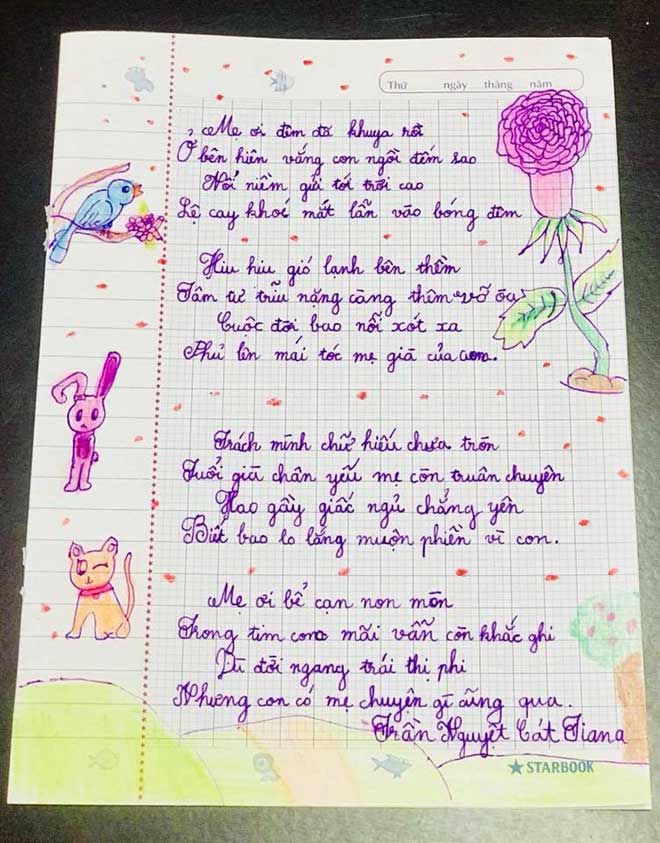 Thứ ngày tháng năm
Mẹ ơi đêm đã khuya rồi
Ở bên hiên vắng con ngồi đếm sao
Nỗi niềm gửi tới trời cao
Lệ cay khoé mắt lẫn vào bóng đêm
Hiu hiu gió lạnh bên thềm
Tâm tư trĩu nặng càng thêm vỡ òa
Cuộc đời bao nỗi xót xa
Phủ lên mái tóc mẹ già của con.
Trách mình chữ hiếu chưa tròn
Tuổi già chân yếu mẹ còn truân chuyên
Hao gầy giấc ngủ chẳng yên
Biết bao lo lắng muộn phiền vì con.
Mẹ ơi bể cạn non mòn
Trong tim con mãi vẫn còn khắc ghi
Dù đời ngang trái thị phi
Nhưng con có mẹ chuyện gì cũng qua.
Trần Nguyệt Cát Tiana
STARBOOK